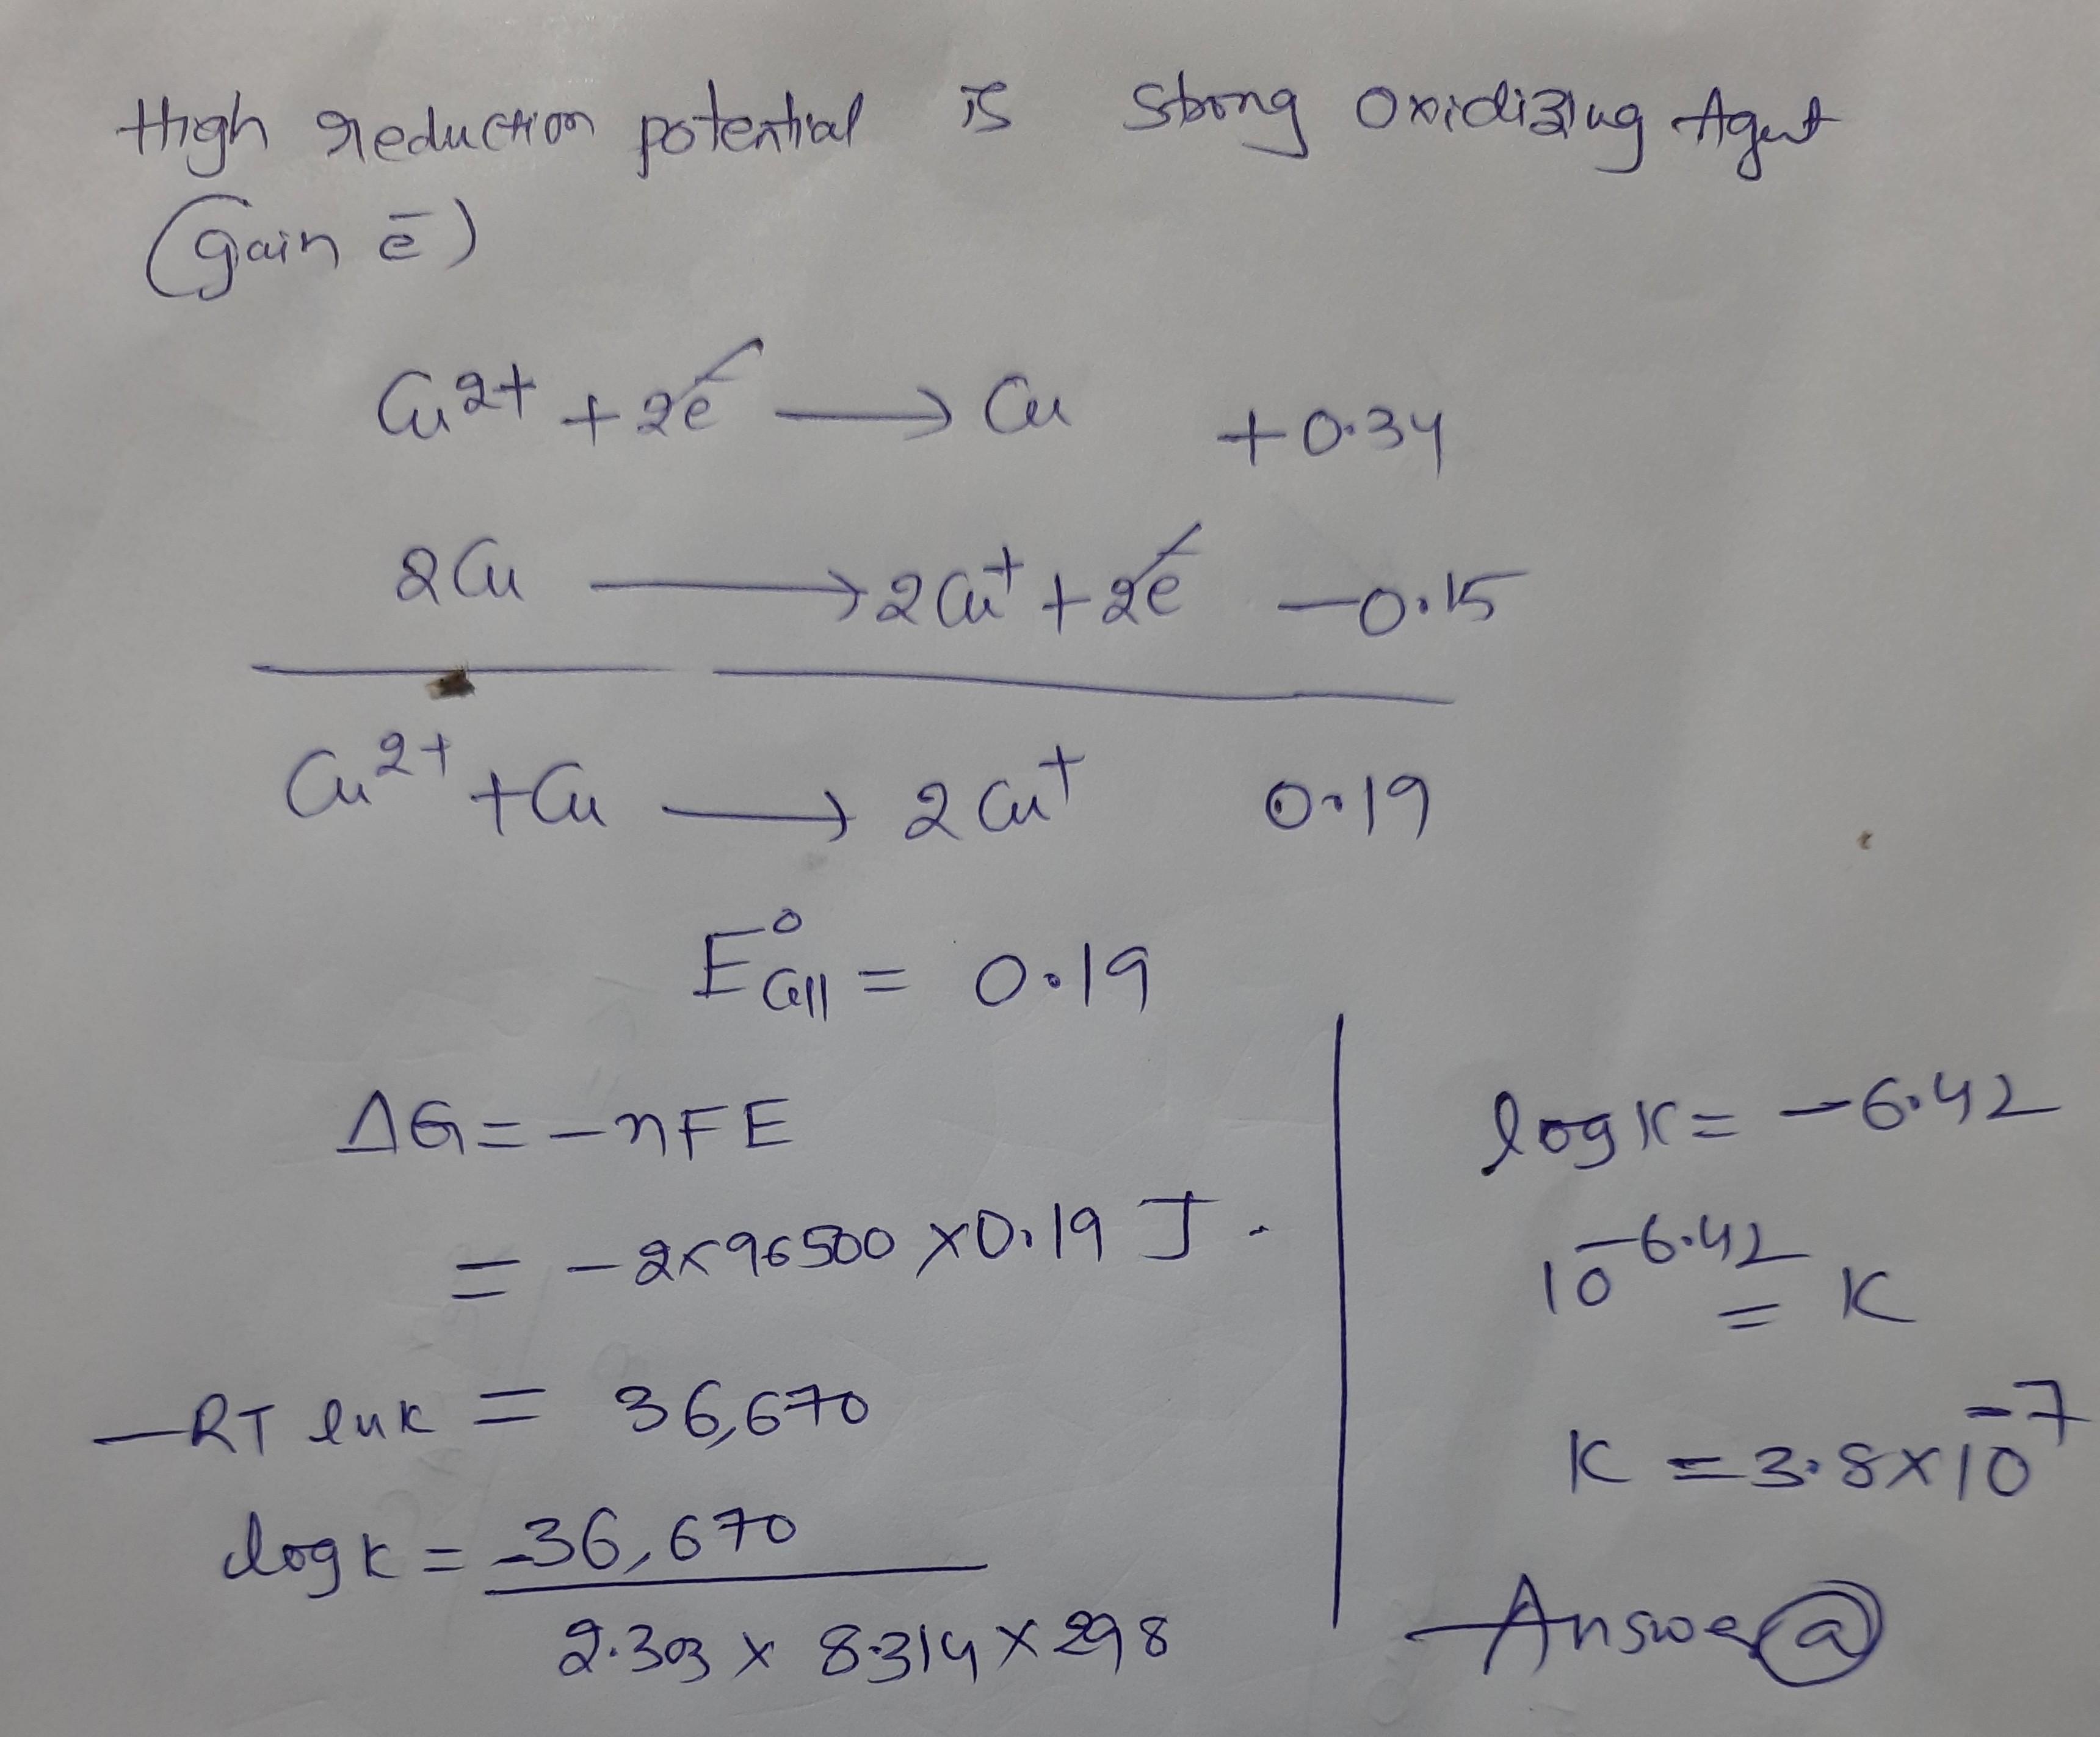 High reduction potential is strong Oxidizing Agent
(gain ē)
Cu²⁺ + 2e⁻ ⟶ Cu +0.34
2Cu ⟶ 2Cu⁺ + 2e⁻ -0.15
Cu²⁺ + Cu ⟶ 2Cu⁺ 0.19
E°Cell = 0.19
ΔG = -nFE
= -2×96500 ×0.19 J.
-RT lnk = 36,670
log k = -36,670
2.303 × 8.314 × 298
log K = -6.42
10⁻⁶·⁴² = K
K = 3.8×10⁻⁷
Answer ⓐ